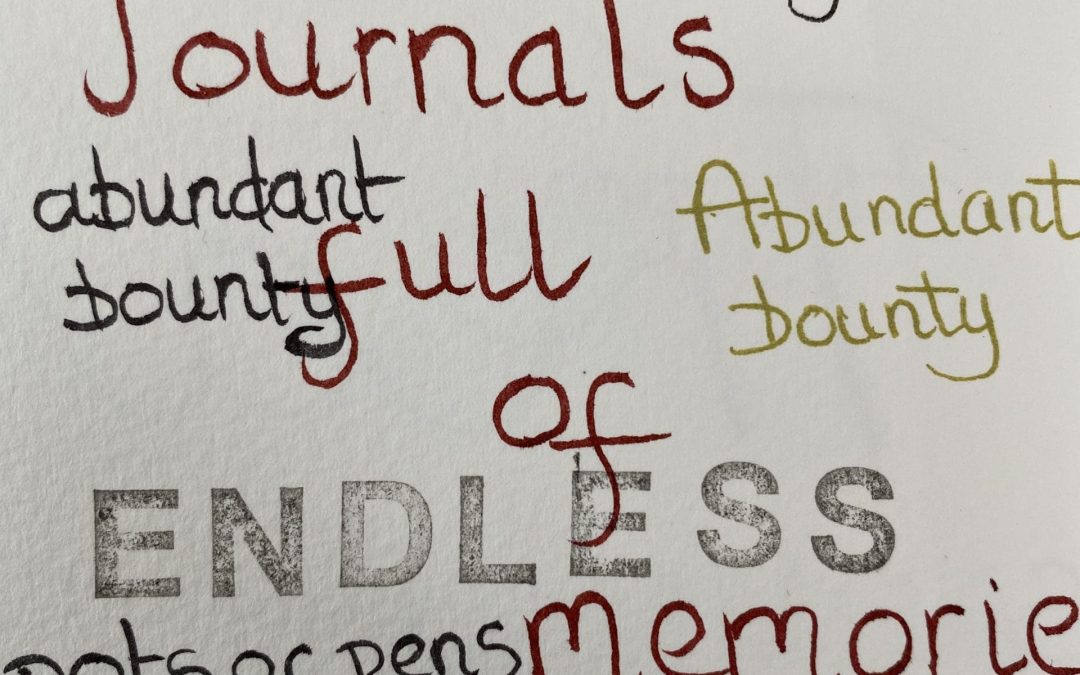 Journals
abundant
bounty full
Abundant
bounty
of
ENDLESS
pots or pens Memorie